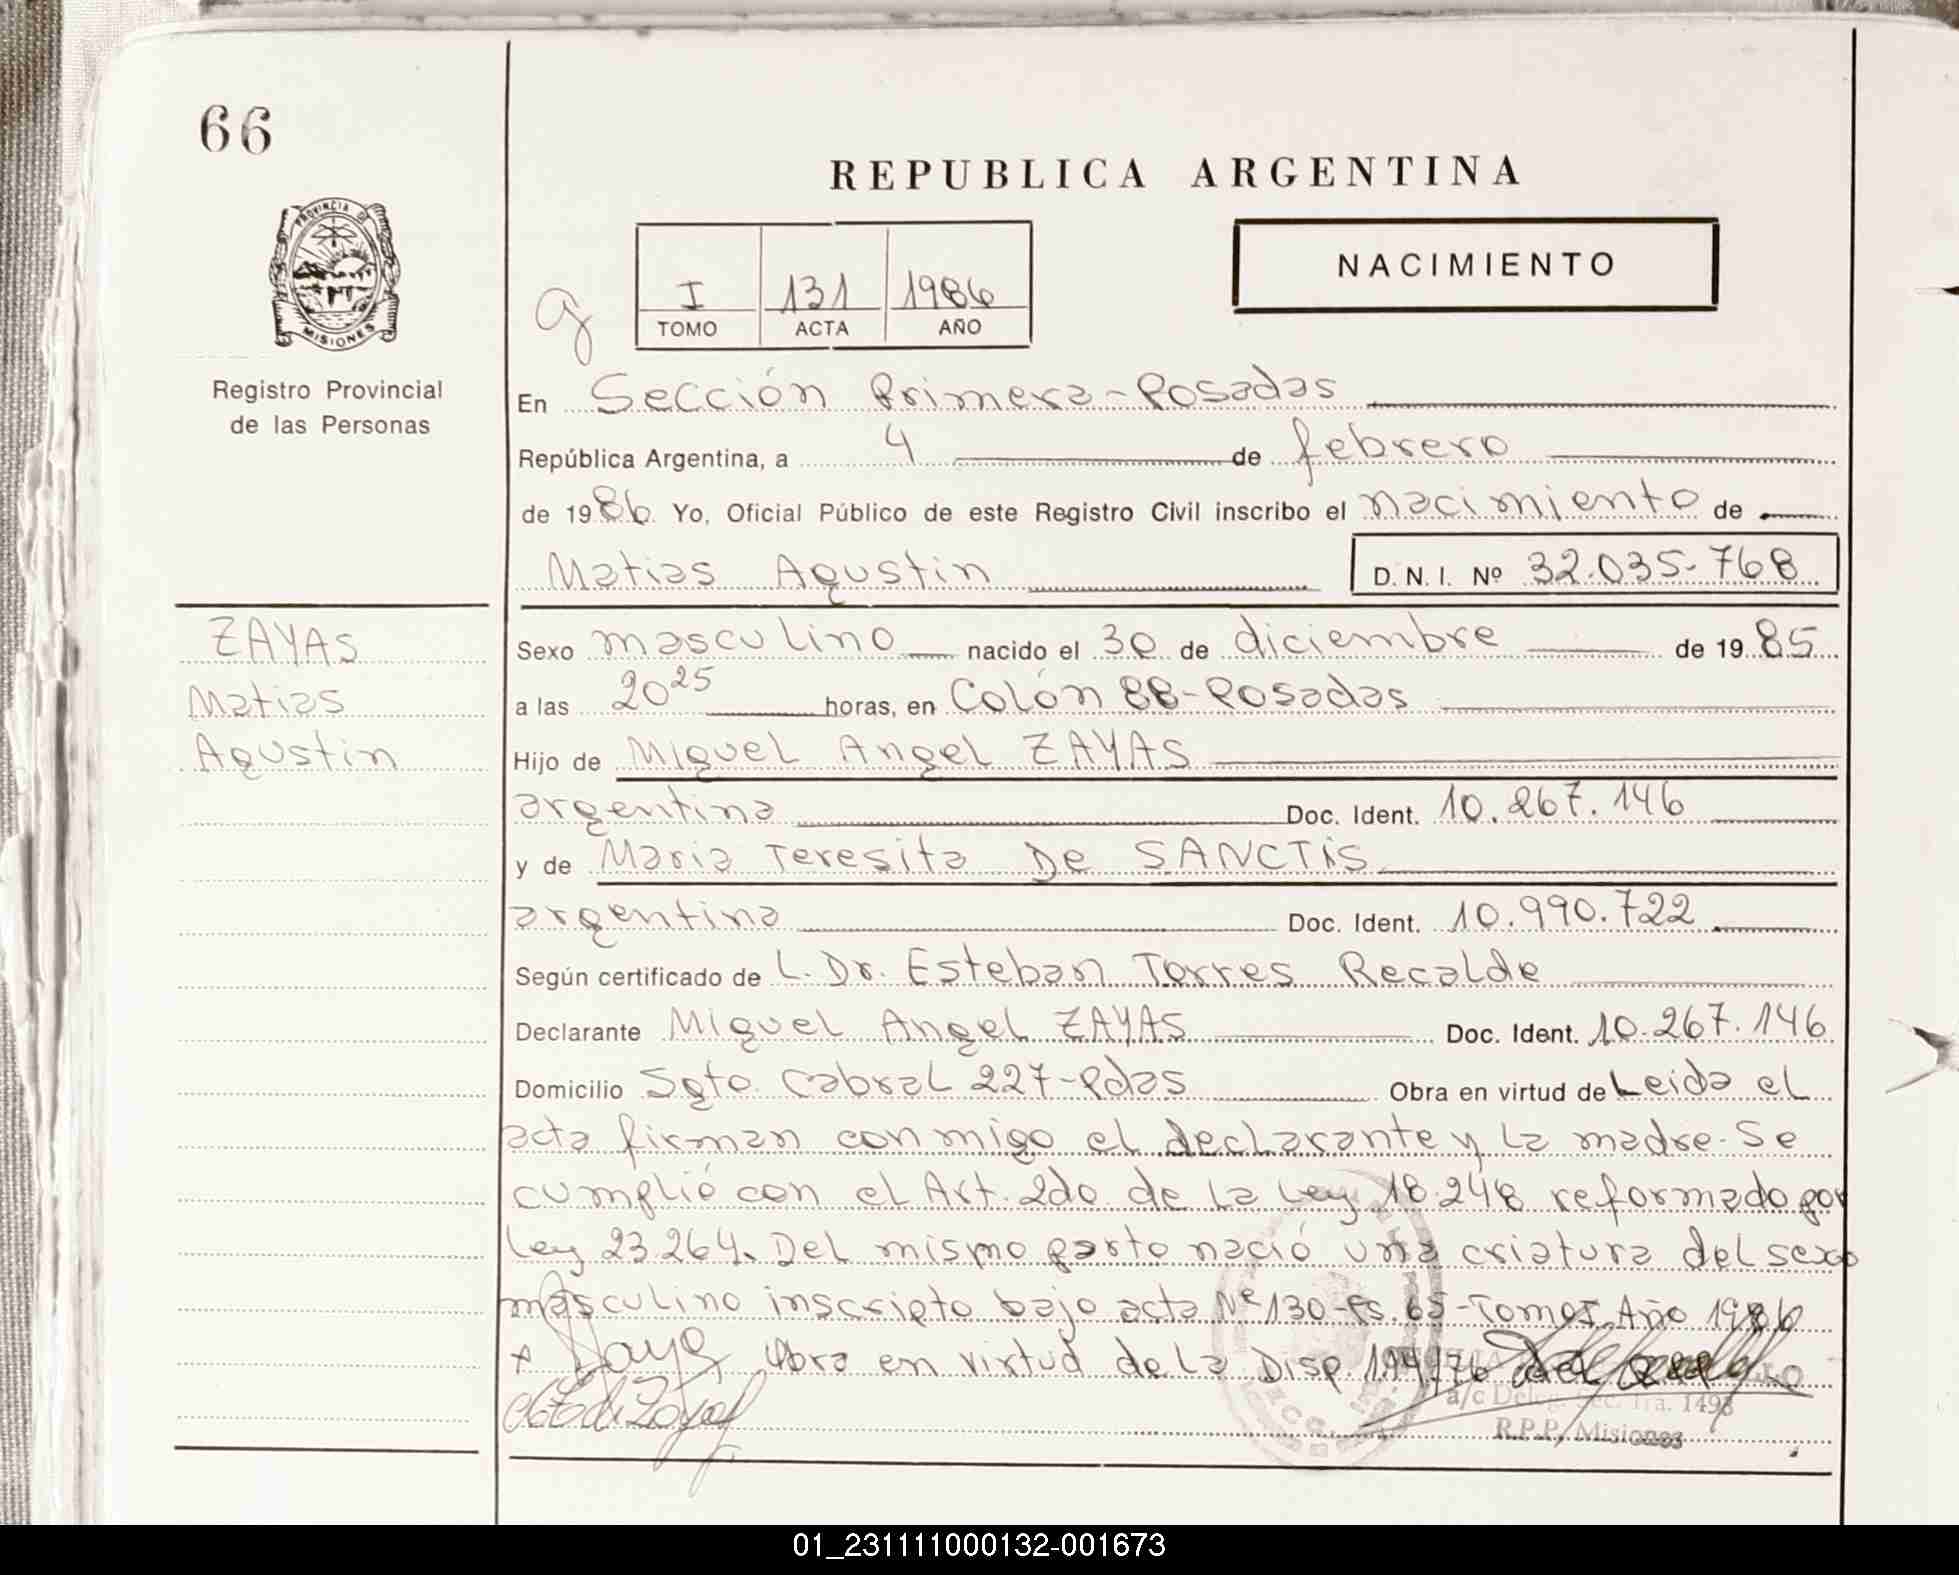 66
REPUBLICA ARGENTINA
PROVINCIA DE
MISIONES
Registro Provincial
de las Personas
I 131 1986
TOMO ACTA AÑO
NACIMIENTO
En Sección Primera-Posadas
República Argentina, a 4 de febrero
de 1986 Yo, Oficial Público de este Registro Civil inscribo el nacimiento de
Matias Agustin D.N.I. Nº 32.035.768
ZAYAS
Matias
Agustin
Sexo masculino nacido el 30 de diciembre de 1985
a las 20 25 horas, en Colón 88-Posadas
Hijo de Miguel Angel ZAYAS
argentina Doc. Ident. 10.267.146
y de Maria Teresita De SANCTIS
argentina Doc. Ident. 10.990.722
Según certificado de L. Dr. Esteban Torres Recalde
Declarante Miguel Angel ZAYAS Doc. Ident. 10.267.146
Domicilio Sgto. Cabral 227-Pdas Obra en virtud de Leida el
acta firman conmigo el declarante y la madre. Se
cumplió con el Art. 2do. de la Ley 18.248 reformado por
Ley 23.264. Del mismo parto nació una criatura del sexo
masculino inscripto bajo acta Nº 130-Fs. 65-Tomo I. Año 1986
Obra en virtud de la Disp.
a/c Deleg. Sec. 1ra. 1493
R.P.P. Misiones
01_231111000132-001673